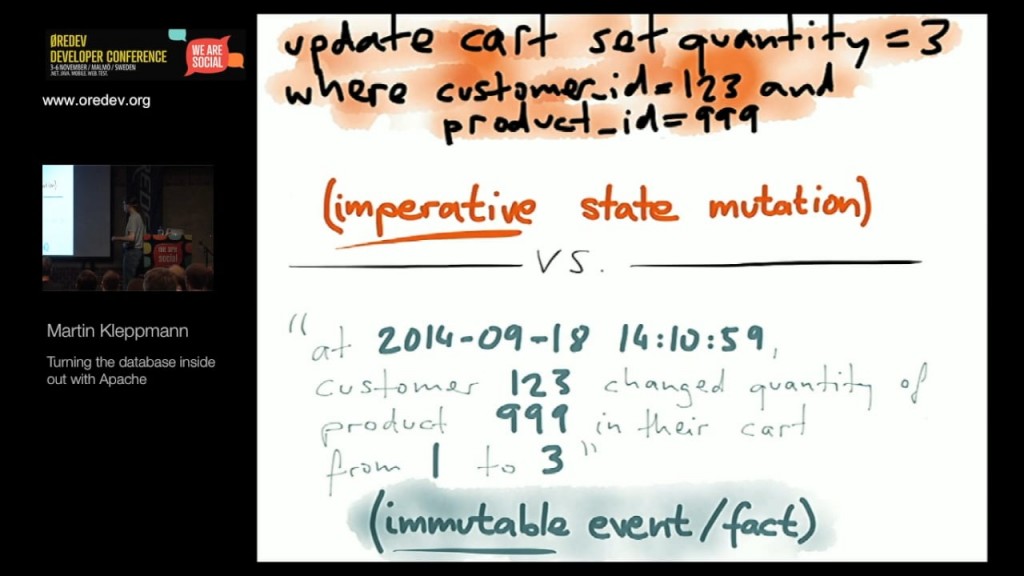 ØREDEV
DEVELOPER CONFERENCE
3-6 NOVEMBER / MALMÖ / SWEDEN
.NET JAVA MOBILE WEB TEST
WE ARE
SOCIAL
www.oredev.org
we are
social
Martin Kleppmann
Turning the database inside
out with Apache
update cart set quantity = 3
where customer_id = 123 and
product_id = 999
(imperative state mutation)
VS.
"at 2014-09-18 14:10:59,
customer 123 changed quantity of
product 999 in their cart
from 1 to 3"
(immutable event/fact)